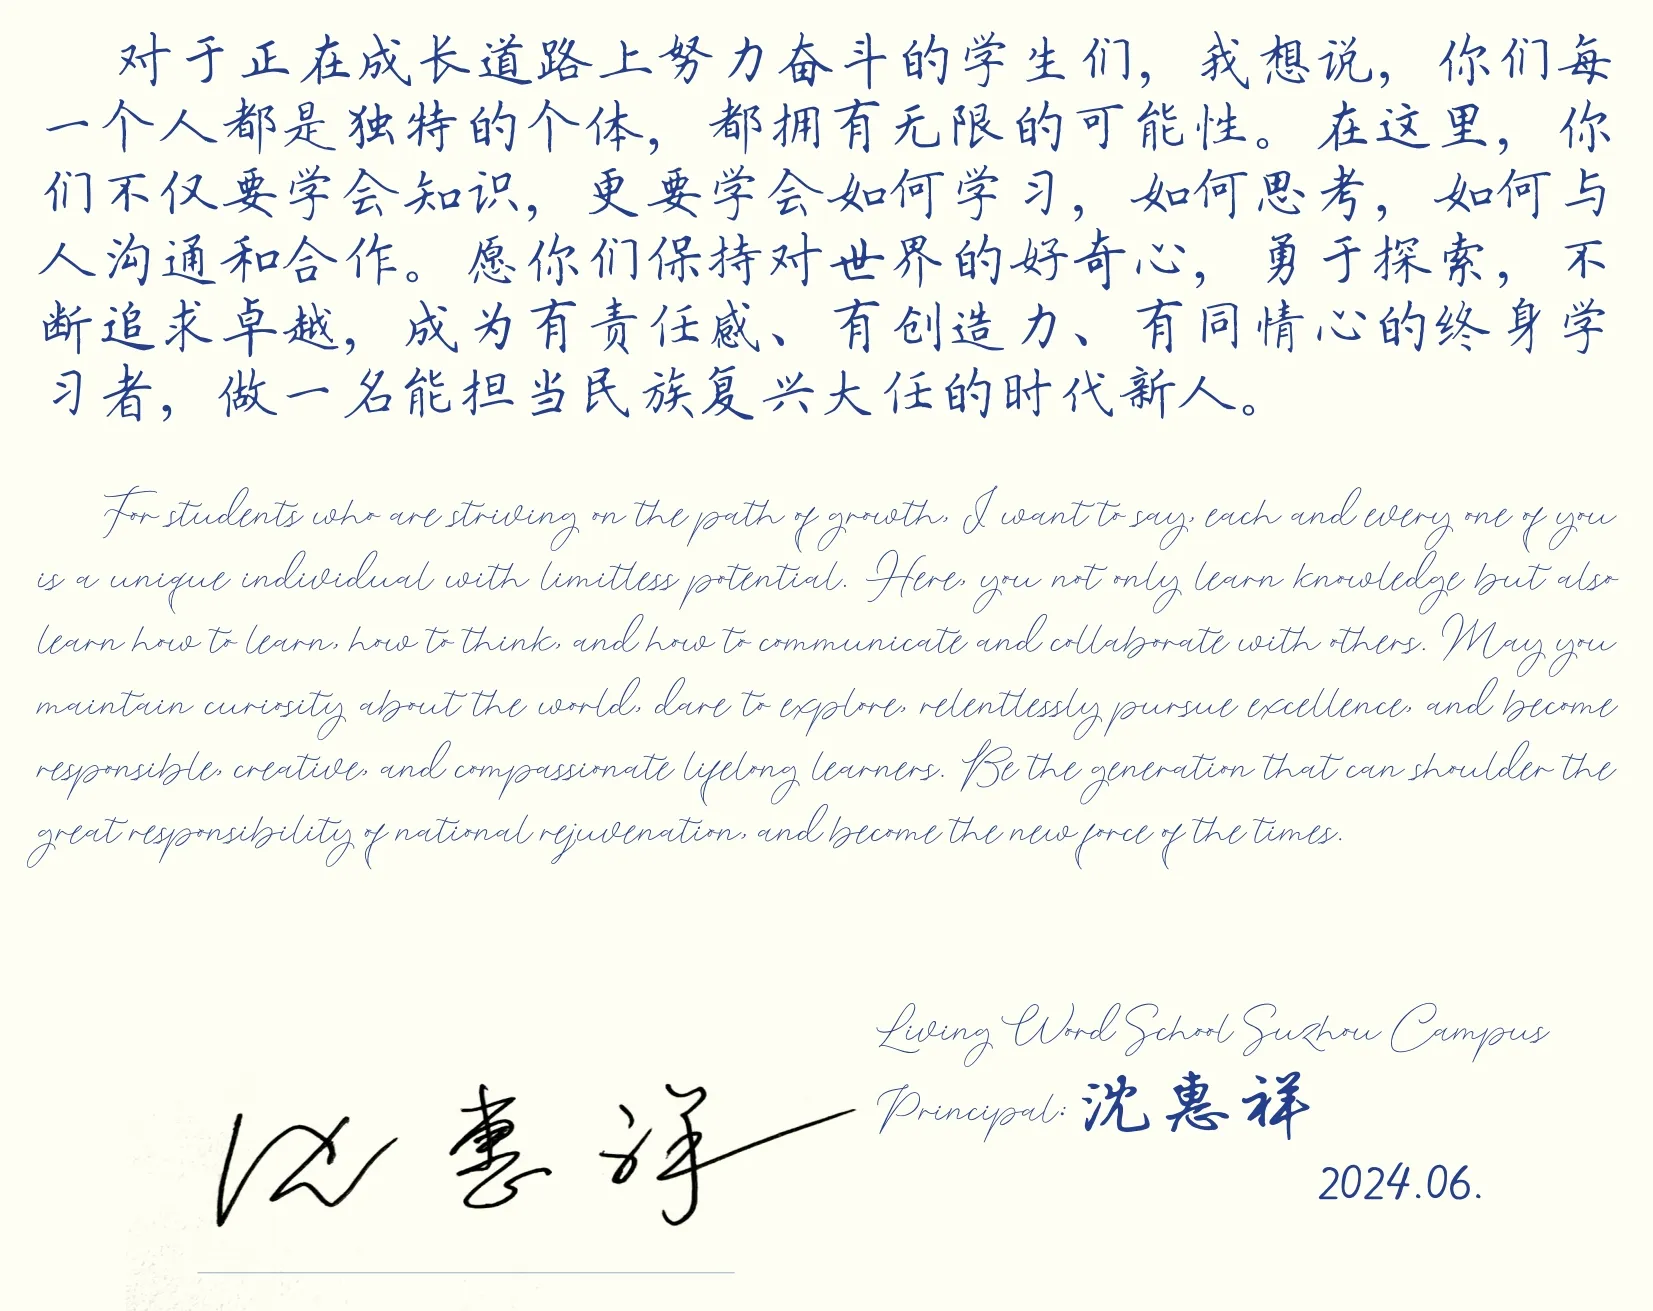 对于正在成长道路上努力奋斗的学生们，我想说，你们每
一个人都是独特的个体，都拥有无限的可能性。在这里，你
们不仅要学会知识，更要学会如何学习，如何思考，如何与
人沟通和合作。愿你们保持对世界的好奇心，勇于探索，不
断追求卓越，成为有责任感、有创造力、有同情心的终身学
习者，做一名能担当民族复兴大任的时代新人。
For students who are striving on the path of growth, I want to say, each and every one of you
is a unique individual with limitless potential. Here, you not only learn knowledge but also
learn how to learn, how to think, and how to communicate and collaborate with others. May you
maintain curiosity about the world, dare to explore, relentlessly pursue excellence, and become
responsible, creative, and compassionate lifelong learners. Be the generation that can shoulder the
great responsibility of national rejuvenation, and become the new force of the times.
Living Word School Suzhou Campus
Principal: 沈惠祥
沈惠祥
2024.06.